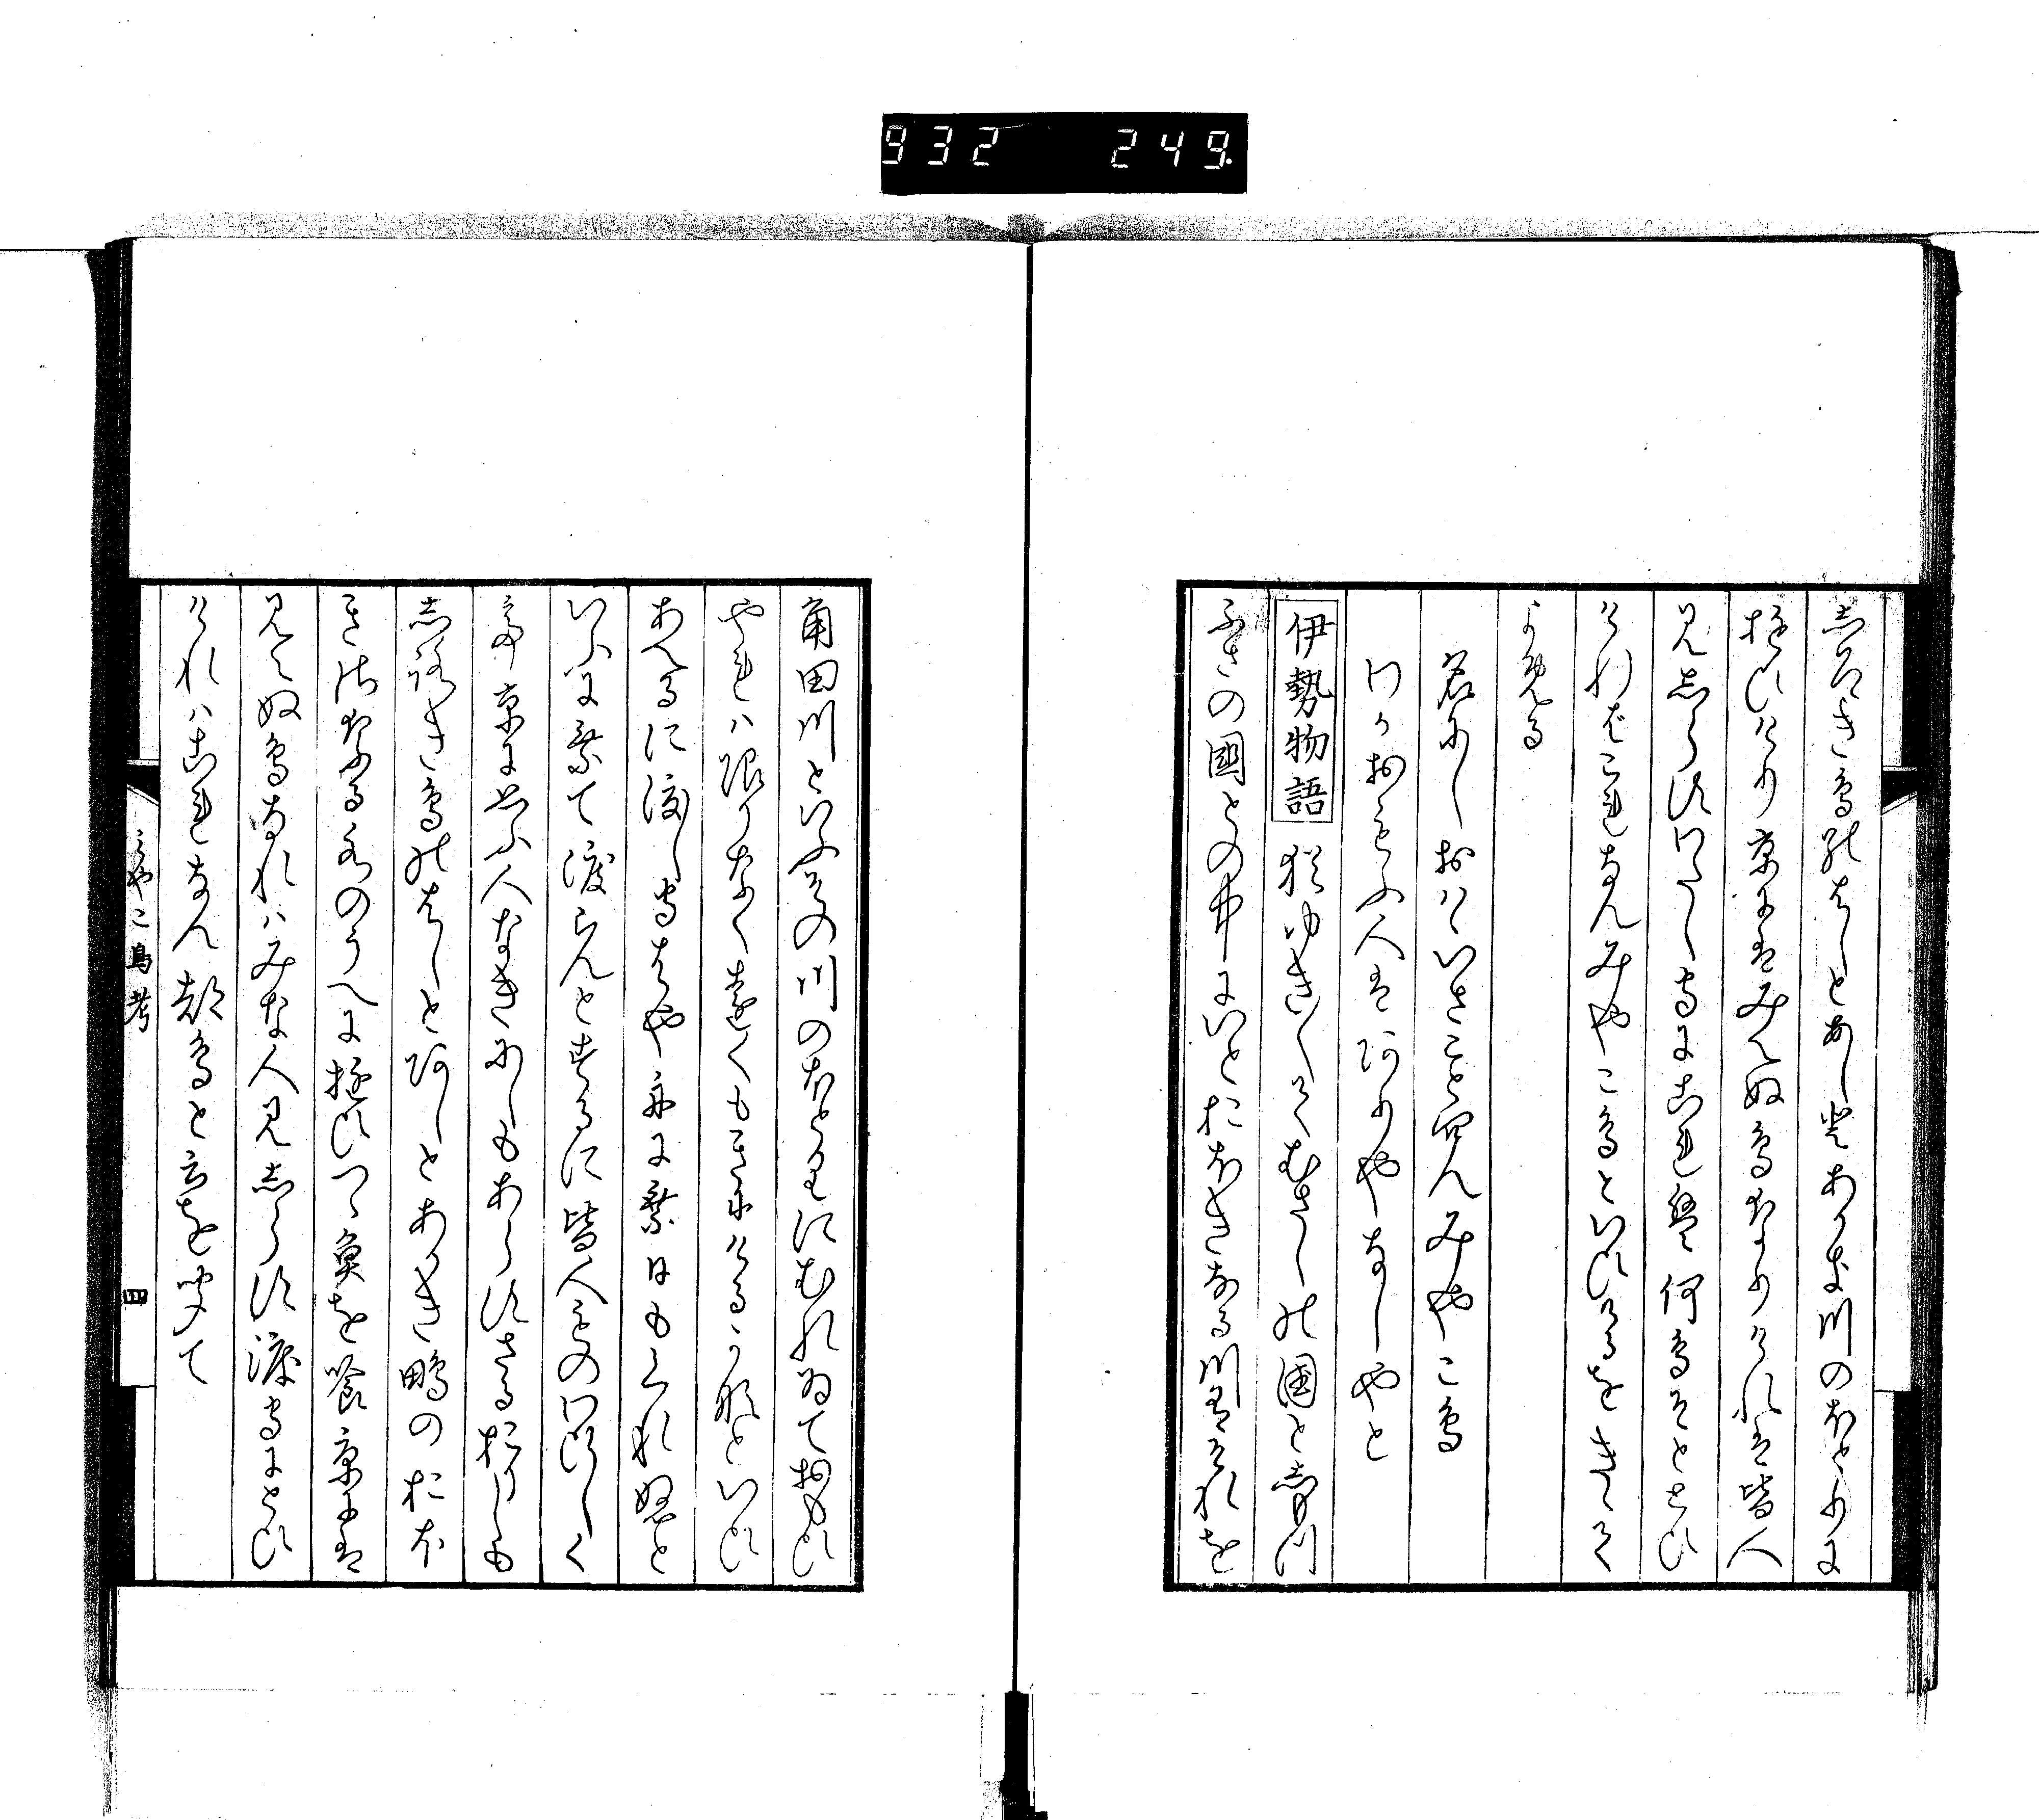 932 249
志ろき鳥のはしとあしとあかき川のほとりに
遊ひけり京にはみえぬ鳥なりけれは皆人
見しらすわたし守にこれは何鳥そととひ
けれはこれなんみやこ鳥といひけるをきゝて
よめる
名にしおはゝいさこと問んみやこ鳥
わかおもふ人はありやなしやと
伊勢物語 猶ゆき〳〵てむさしの国と志もつ
ふさの國との中にいとおほきなる川有それを
角田川といふその川のほとりにむれゐて思ひ
やれハ限りなく遠くもきにけるかなとわひ
あへるに渡し守はや舟に乗日もくれぬと
いふに乗て渡らんとするに皆人ものわひしく
て京に思ふ人なきにしもあらすさるおりしも
志ろき鳥のはしとあしとあかき鴫のおほ
きさなる水のうへに遊ひつゝ魚を喰京には
見えぬ鳥なれハみな人見しらす渡守にとひ
けれハこれなん都鳥と云を聞て
みやこ鳥考
四